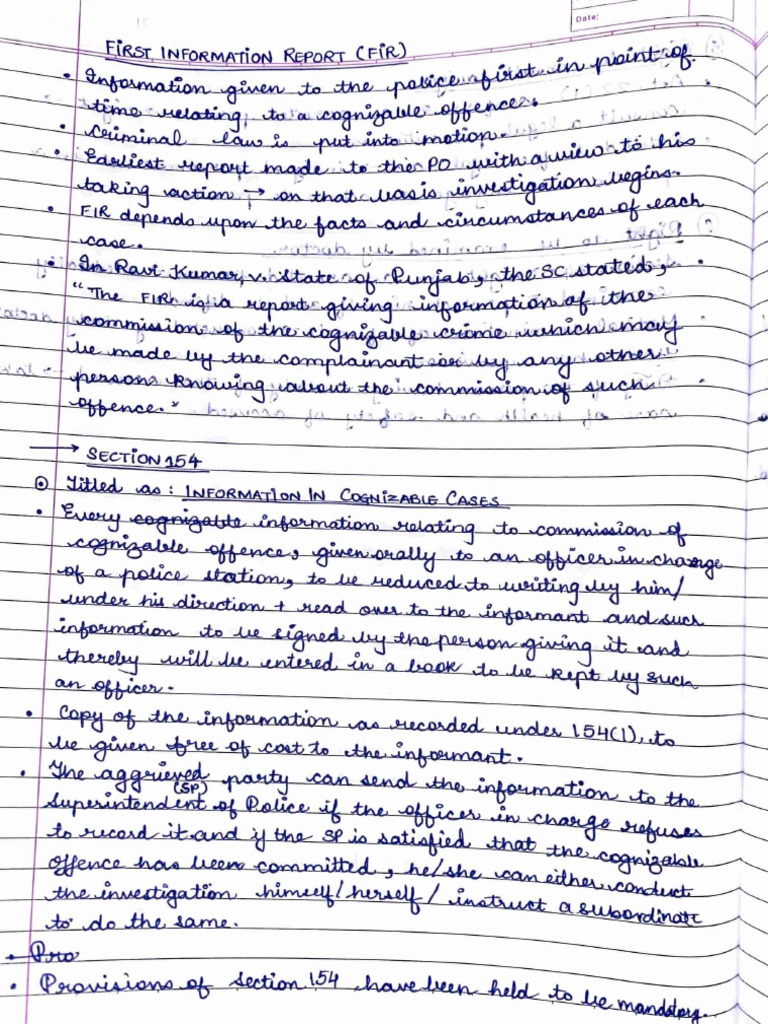 Date:
FIRST INFORMATION REPORT (FIR)
• Information given to the police first in point of
time relating to a cognizable offence.
• Criminal law is put into motion.
• Earliest report made to the PO with a view to his
taking action → on that basis investigation begins.
• FIR depends upon the facts and circumstances of each
case.
• In Ravi Kumar v. State of Punjab, the SC stated,
"The FIR is a report giving information of the
commission of the cognizable crime which may
be made by the complainant or by any other
person knowing about the commission of such
offence."
→ SECTION 154
⊙ Titled as: INFORMATION IN COGNIZABLE CASES
• Every cognizable information relating to commission of
cognizable offence, given orally to an officer in charge
of a police station, to be reduced to writing by him/
under his direction + read over to the informant and such
information to be signed by the person giving it and
thereby will be entered in a book to be kept by such
an officer.
• Copy of the information as recorded under 154(1), to
be given free of cost to the informant.
• The aggrieved party can send the information to the
(SP)
Superintendent of Police if the officer in charge refuses
to record it and if the SP is satisfied that the cognizable
offence has been committed, he/she can either conduct
the investigation himself/herself/ instruct a subordinate
to do the same.
• Pro
• Provisions of Section 154 have been held to be mandatory.